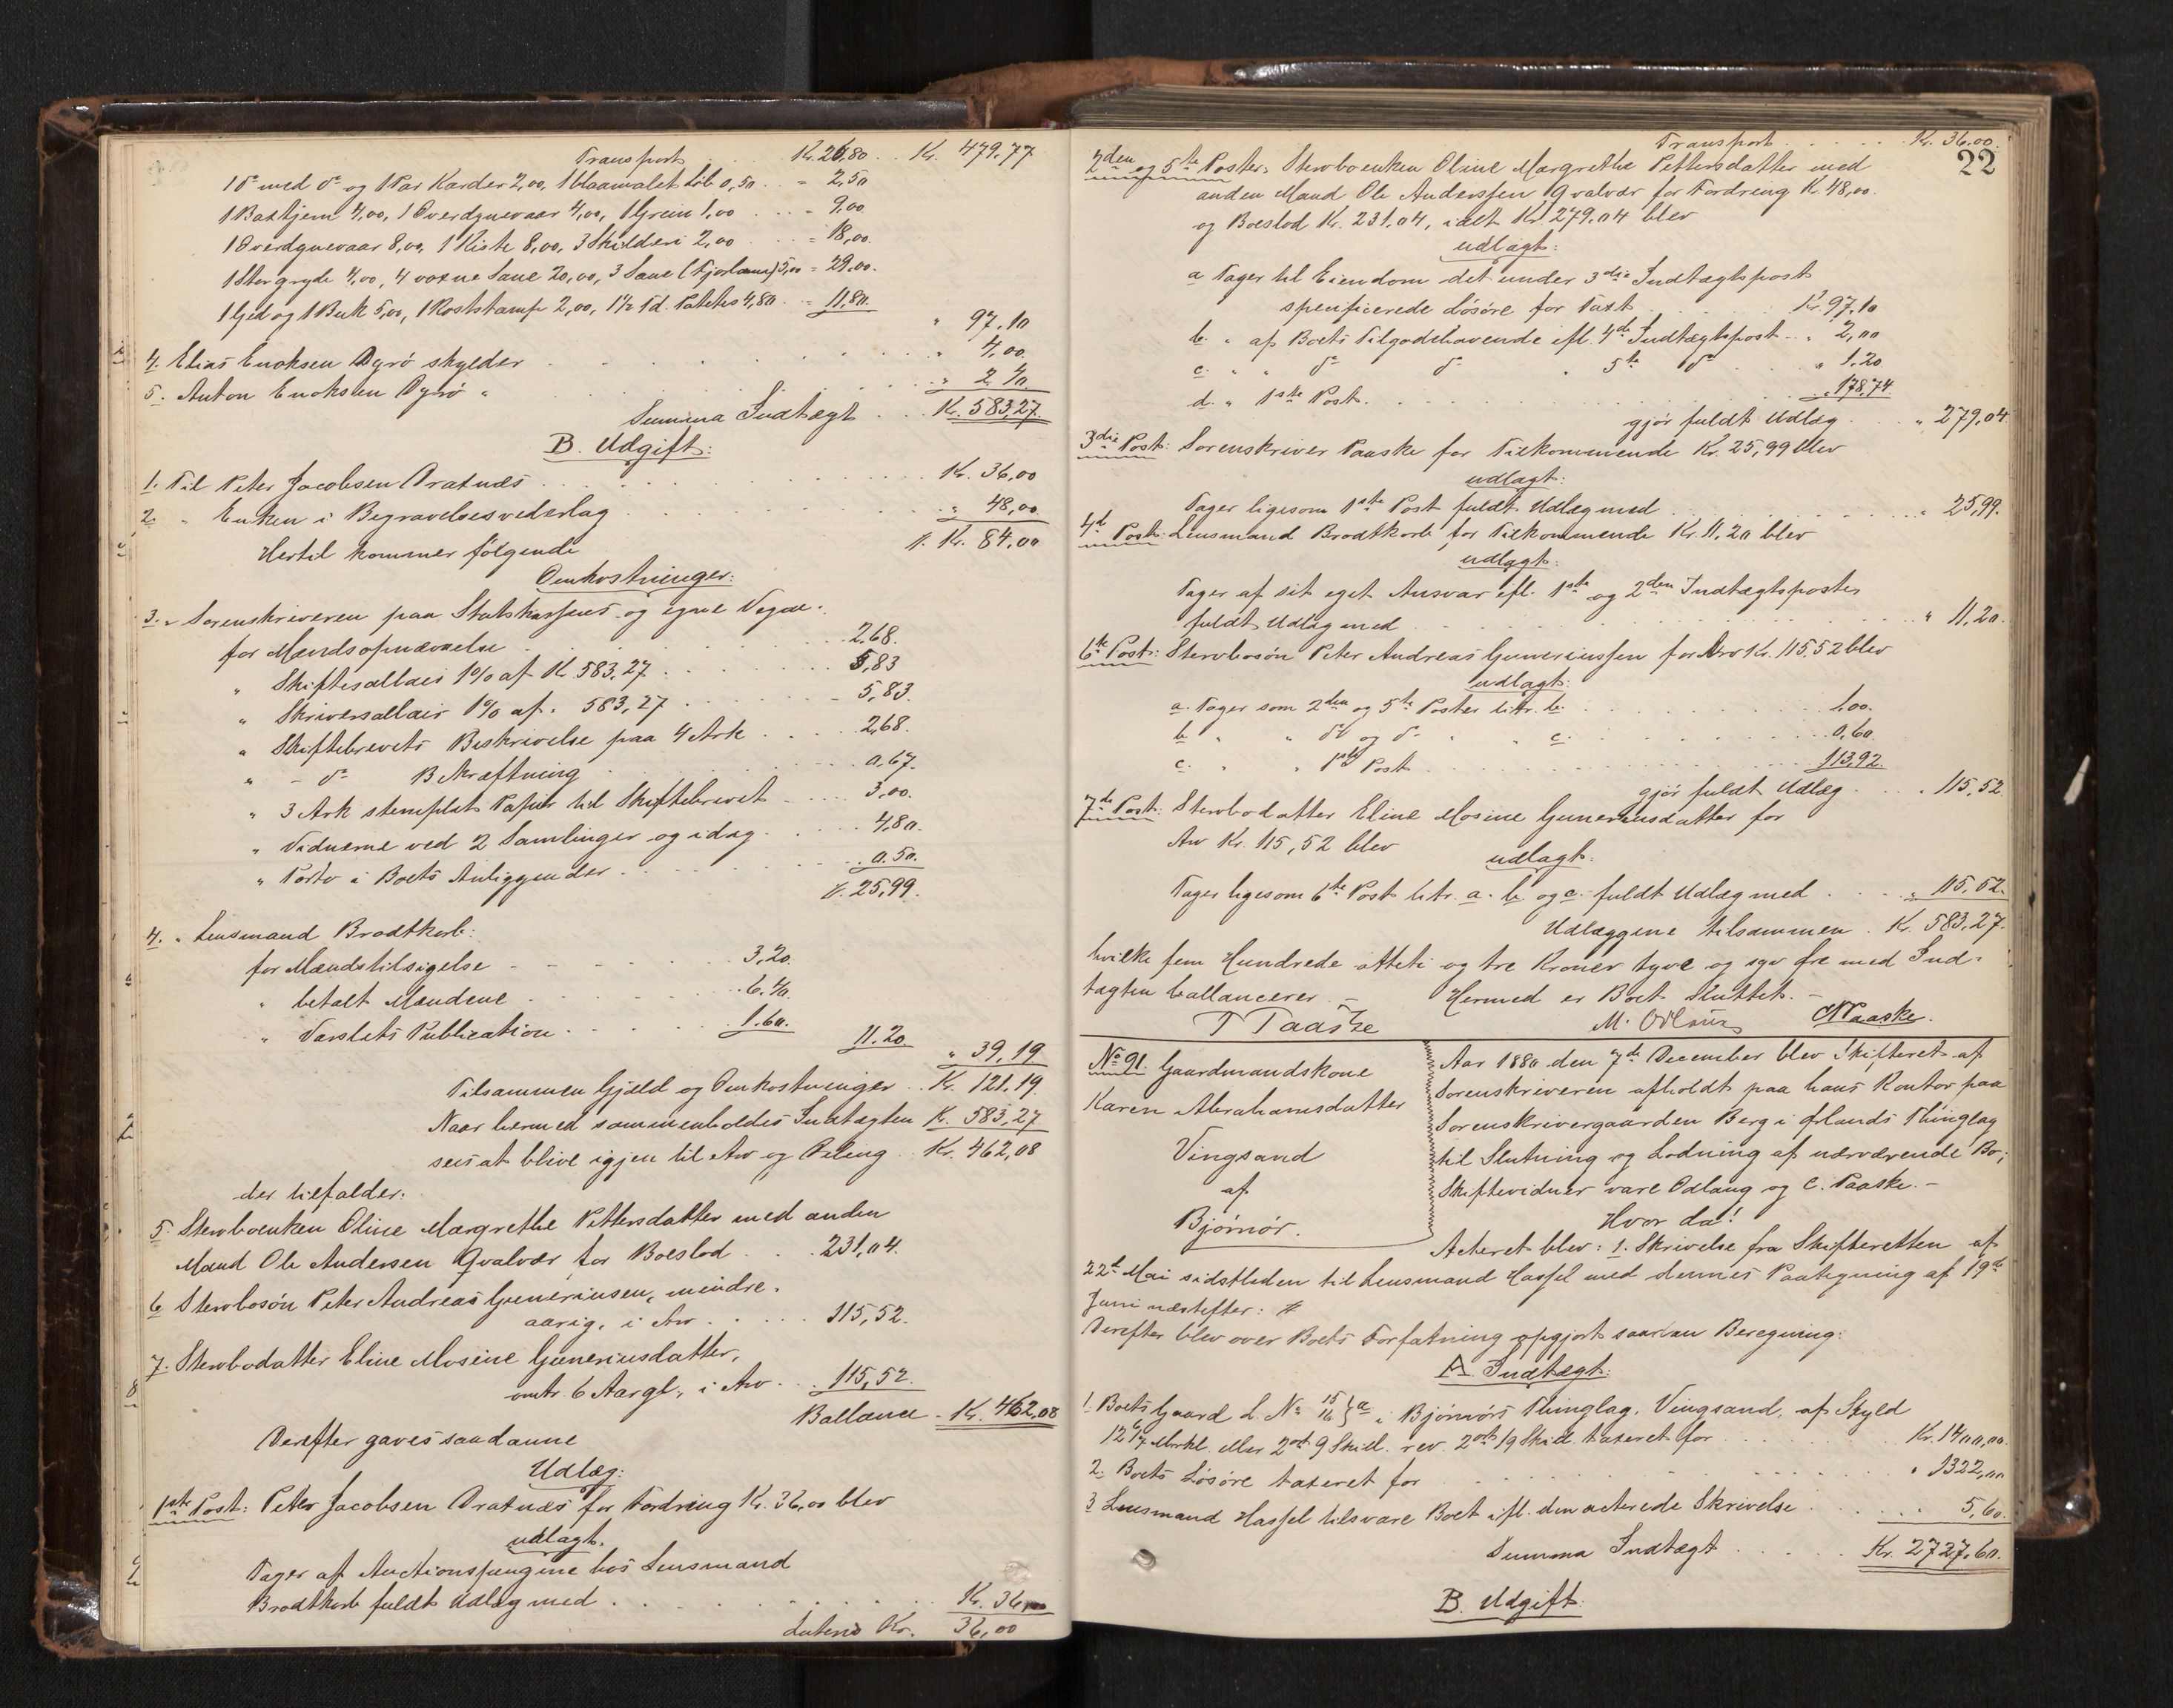 Transport . . Kr. 26,80 . . Kr. 479,77
1 do med do og 1 Par Karder 2,00, 1 blaamalet Löb 0,50 . . " 2,50
1 Baxtjern 4,00, 1 Overdynevaar 4,00, 1 Grein 1,00 . . . . " 9,00
1 Overdynevaar 8,00, 1 Kiste 8,00, 3 Skilderi 2,00 . . " 18,00.
1 Stor gryde 4,00, 4 voxne Saue 20,00, 3 Saue (Fjorlam) 5,00 " 29,00.
1 Gjed og 1 Buk 5,00, 1 Koststamp 2,00, 1½ Td. Potetes 4,80 . . " 11,80.
" 97,10
4. Elias Enoksen Dyrö skylder . . . . . . . . " 4,00.
5. Anton Enoksen Dyrö " . . . . . . . . " 2.40.
Summa Indtægt . . Kr. 583,27.
B. Udgift:
1. Til Peter Jacobsen Aratnæs . . . . . . . . Kr. 36,00
2. " Enken i Begravelsesvederlag . . . . . . . . " 48,00
Hertil kommer følgende #. Kr. 84,00
Omkostninger:
3. " Sorenskriveren paa Statskassens og egne Vegne:
for Mændsopnævnelse . . . . . . . 2,68.
" Skiftesallair 1% af Kr 583,27 . . . . . 5,83
" Skriversallair 1% af " 583,27 . . . . . 5,83.
" Skiftebrevets Beskrivelse paa 4 Ark . . . . 2,68.
" - do Bekræftning . . . . . . 0,67.
" 3 Ark stemplet Papiir til Skiftebrevet . . . . 3,00.
" Vidnerne ved 2 Samlinger og idag . . . . 4,80.
" Porto i Boets Anliggender . . . . . . 0.50.
#. 25,99.
4. " Lensmand Brodtkorb:
for Mændstilsigelse . . . . . . 3,20.
" betalt Mændene . . . . . . 6.40.
" Varslets Publication . . . . . 1.60. 11.20.
" 39,19
Tilsammen Gjæld og Omkostninger . . Kr. 121,19.
Naar hermed sammenholdes Indtægten Kr. 583,27
sees at blive igjen til Arv og Deling . . Kr. 462,08
der tilfalder:
5. Stervboenken Oline Margrethe Pettersdatter med anden
Mand Ole Andersen Qvalvær for Boeslod . . . 231,04.
6 Stervbosön Peter Andreas Guneriusen, mindre-
aarig, i Arv . . . . . 115,52.
7. Stervbodatter Eline Mosine Guneriusdatter,
omtr. 6 Aar gl., i Arv . . . 115,52.
Ballance . Kr. 462,08
Derefter gaves saadanne
Udlæg:
1ste Post: Peter Jacobsen Aratnæs for Fordring Kr. 36,00 blev
udlagt.
Tager af Auctionspengene hos Lensmand
Brodtkorb fuldt Udlæg med . . . . . . . . . Kr. 36,00
Lateris Kr. 36,00
Transport . . . . . Kr. 36,00.
22
2den og 5te Poster: Stervboenken Oline Margrethe Pettersdatter med
anden Mand Ole Anderssen Qvalvær for Fordring Kr. 48,00.
og Boeslod Kr. 231,04, ialt Kr. 279,04 blev
udlagt:
a Tager til Eiendom det under 3die Indtægtspost
specificerede Lösöre for Taxt . . . . Kr. 97,10
b. " af Boets Tilgodehavende ifl. 4de Indtægtspost . . " 2,00
c. " " do do " 5te do " 1.20
d. " 1ste Post . . . . . . . . . . . " 178,74.
gjör fuldt Udlæg . . . " 279,04
3die Post: Sorenskriver Paaske for Tilkommende Kr. 25,99 blev
udlagt:
Tager ligesom 1ste Post fuldt Udlæg med . . . . . . . " 25,99.
4de Post: Lensmand Brodtkorb for Tilkommende Kr. 11,20 blev
udlagt:
Tager af sit eget Ansvar ifl. 1ste og 2den Indtægtsposter
fuldt Udlæg med . . . . . . . . . . . . . . . " 11,20.
6te Post: Stervbosön Peter Andreas Guneriussen for Arv Kr. 115.52 blev
udlagt:
a. Tager som 2den og 5te Poster litr. b. . . . . . . . 1.00.
b. " " do og do " " c. . . . . . . . 0,60.
c. " " 1ste Post . . . . . . . . . . . 113,92.
gjör fuldt Udlæg . . . " 115,52
7de Post: Stervbodatter Eline Mosine Guneriusdatter for
Arv Kr. 115,52 blev
udlagt:
Tager ligesom 6te Post litr. a. b. og c. fuldt Udlæg med . . . . " 115,52.
Udlæggene tilsammen . Kr. 583,27.
hvilke fem Hundrede otteti og tre Kroner tyve og syv Öre med Ind-
tægten ballancerer. – Hermed er Boet sluttet. –
T Paaske M. Odlaug C Paaske.
No 91. Gaardmandskone
Karen Abrahamsdatter
Vingsand
af
Bjørnør.
Aar 1880 den 7de December blev Skifteret af
Sorenskriveren afholdt paa hans Kontor paa
Sorenskrivergaarden Berg i Ørlands Thinglag
til Slutning og Lodning af nærværende Bo;
Skiftevidner vare Odlaug og C. Paaske. –
Hvor da!
Acteret blev: 1. Skrivelse fra Skifteretten af
22de Mai sidstleden til Lensmand Hassel med dennes Paategning af 19de
Juni næstefter: #
Derefter blev over Boets Forfatning opgjort saadan Beregning:
A. Indtægt:
1. Boets Gaard L. No 15/16 } a i Bjørnørs Thinglag, Vingsand, af Skyld
12 6/7 Mrkl. eller 2 ort 9 Skill. rev. 2 ort 19 Skill. taxeret for . . . . . Kr. 1400,00.
2. Boets Lösöre taxeret for . . . . . . . . . . . " 1322,00
3 Lensmand Hassel tilsvare Boet ifl. den acterede Skrivelse . . . . . 5,60.
Summa Indtægt . . . . . Kr. 2727,60.
B. Udgift: